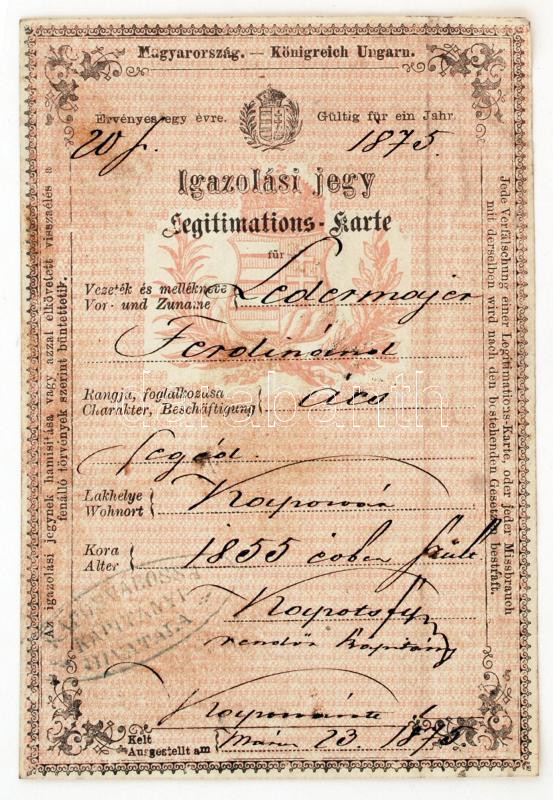 Magyarország. — Königreich Ungarn.
Érvényes egy évre. Gültig für ein Jahr
20 f. 1875.
Igazolási jegy
Legitimations-Karte
für
Vezeték és mellékneve
Vor- und Zuname
Ledermajer
Ferdinánd
Rangja, foglalkozása
Charakter, Beschäftigung
ács
segéd
Lakhelye
Wohnort
Kaposvár
Kora
Alter
1855 évben szült
rendőr kapitány
Kelt
Ausgestellt am
márz 23. 1875.
Az igazolási jegynek hamisitása vagy azzal elkövetett visszaélés a
fenálló törvények szerint büntettetik.
Jede Verfälschung einer Legitimations-Karte, oder jeder Missbrauch
mit derselben wird nach den bestehenden Gesetzen bestraft.
KAPITÁNYI
HIVATALA
darabanth